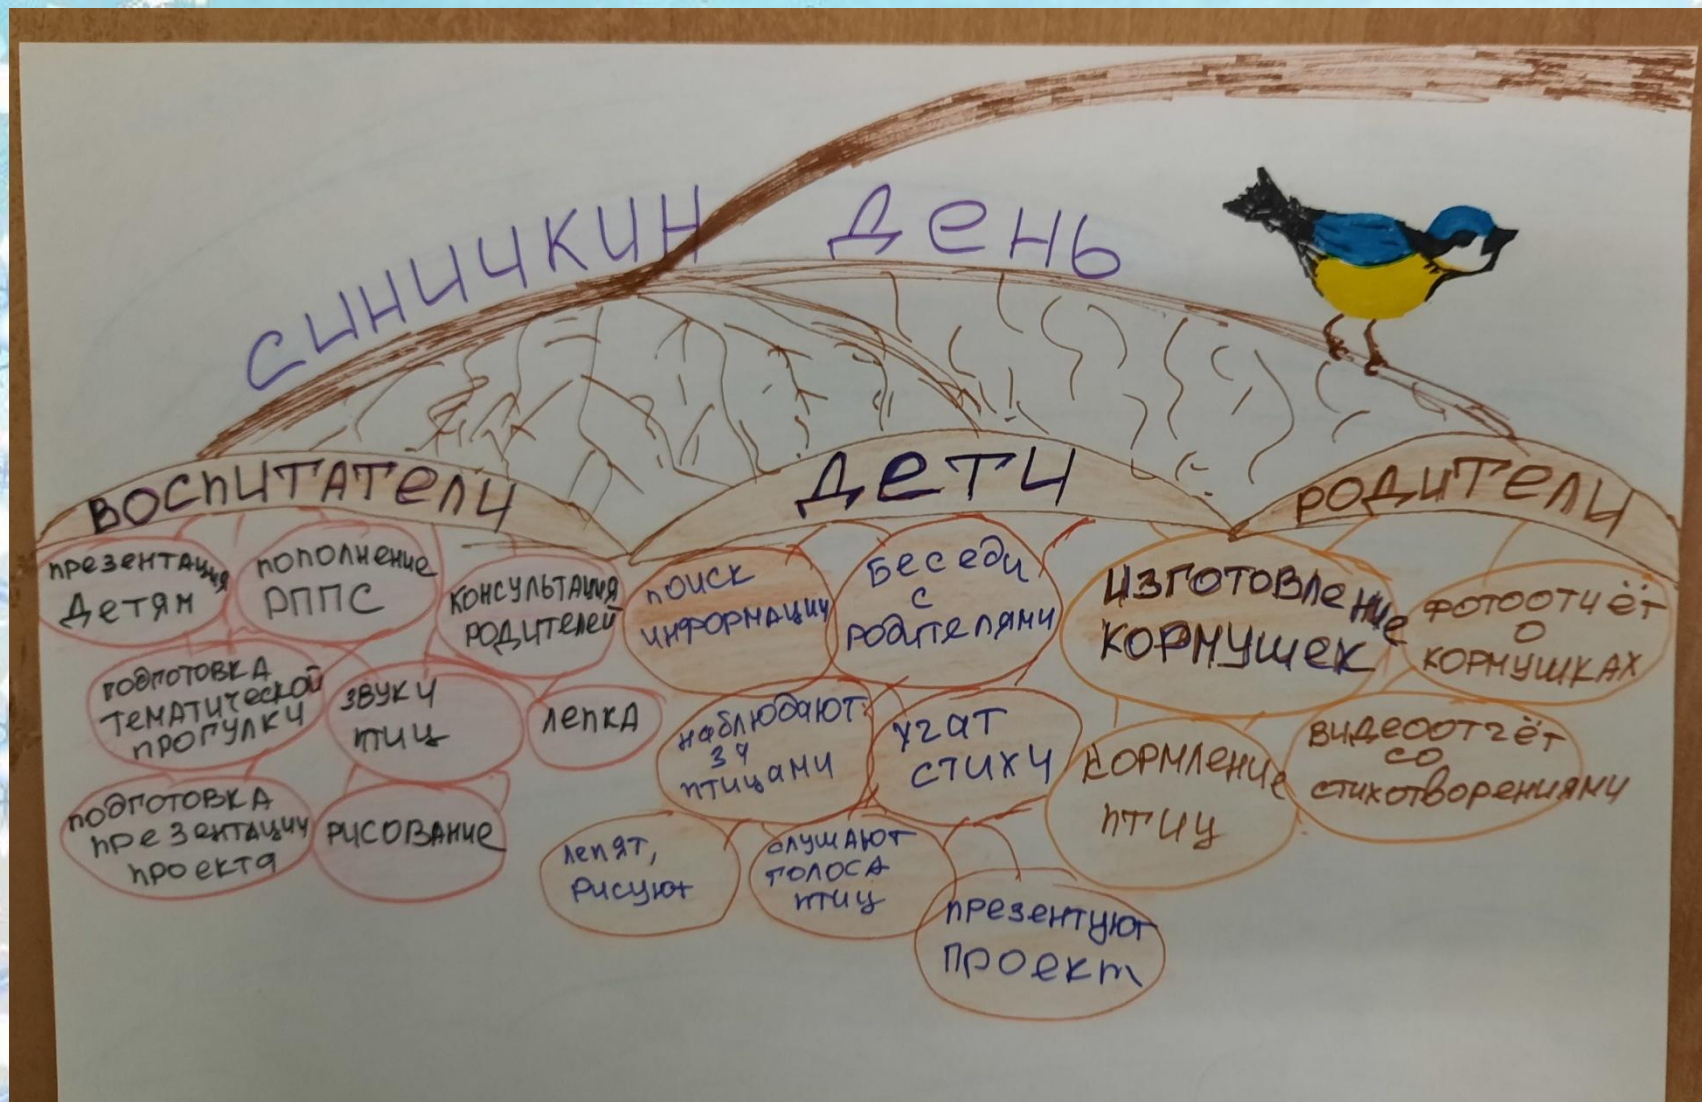 СИНИЧКИН ДЕНЬ
ВОСПИТАТЕЛИ
презентация
детям
пополнение
РППС
консультация
родителей
подготовка
тематической
прогулки
звуки
птиц
лепка
подготовка
презентации
проекта
рисование
ДЕТИ
поиск
информации
беседы
с
родителями
наблюдают
за
птицами
учат
стихи
лепят,
рисуют
слушают
голоса
птиц
презентуют
проект
РОДИТЕЛИ
изготовление
кормушек
фотоотчёт
о
кормушках
кормление
птиц
видеоотчёт
со
стихотворениями